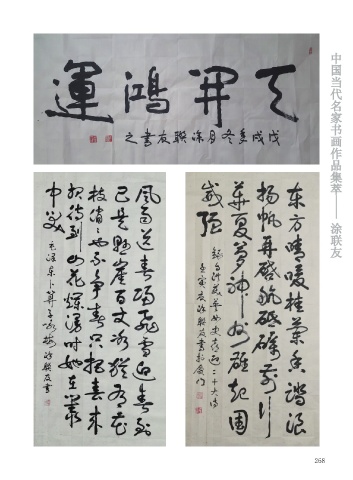 中国当代名家书画作品集萃——涂联友
天開鴻運
戊戌年冬月涂联友書之
风雨送春归飞雪迎春到
已是悬崖百丈冰犹有花
枝俏俏也不争春只把春来
报待到山花烂漫时她在丛
中笑
毛泽东卜算子咏梅涂联友書
东方晴暖桂兰香踏浪
扬帆再启航砥砺前行
華夏梦神州雄起国
威强
268